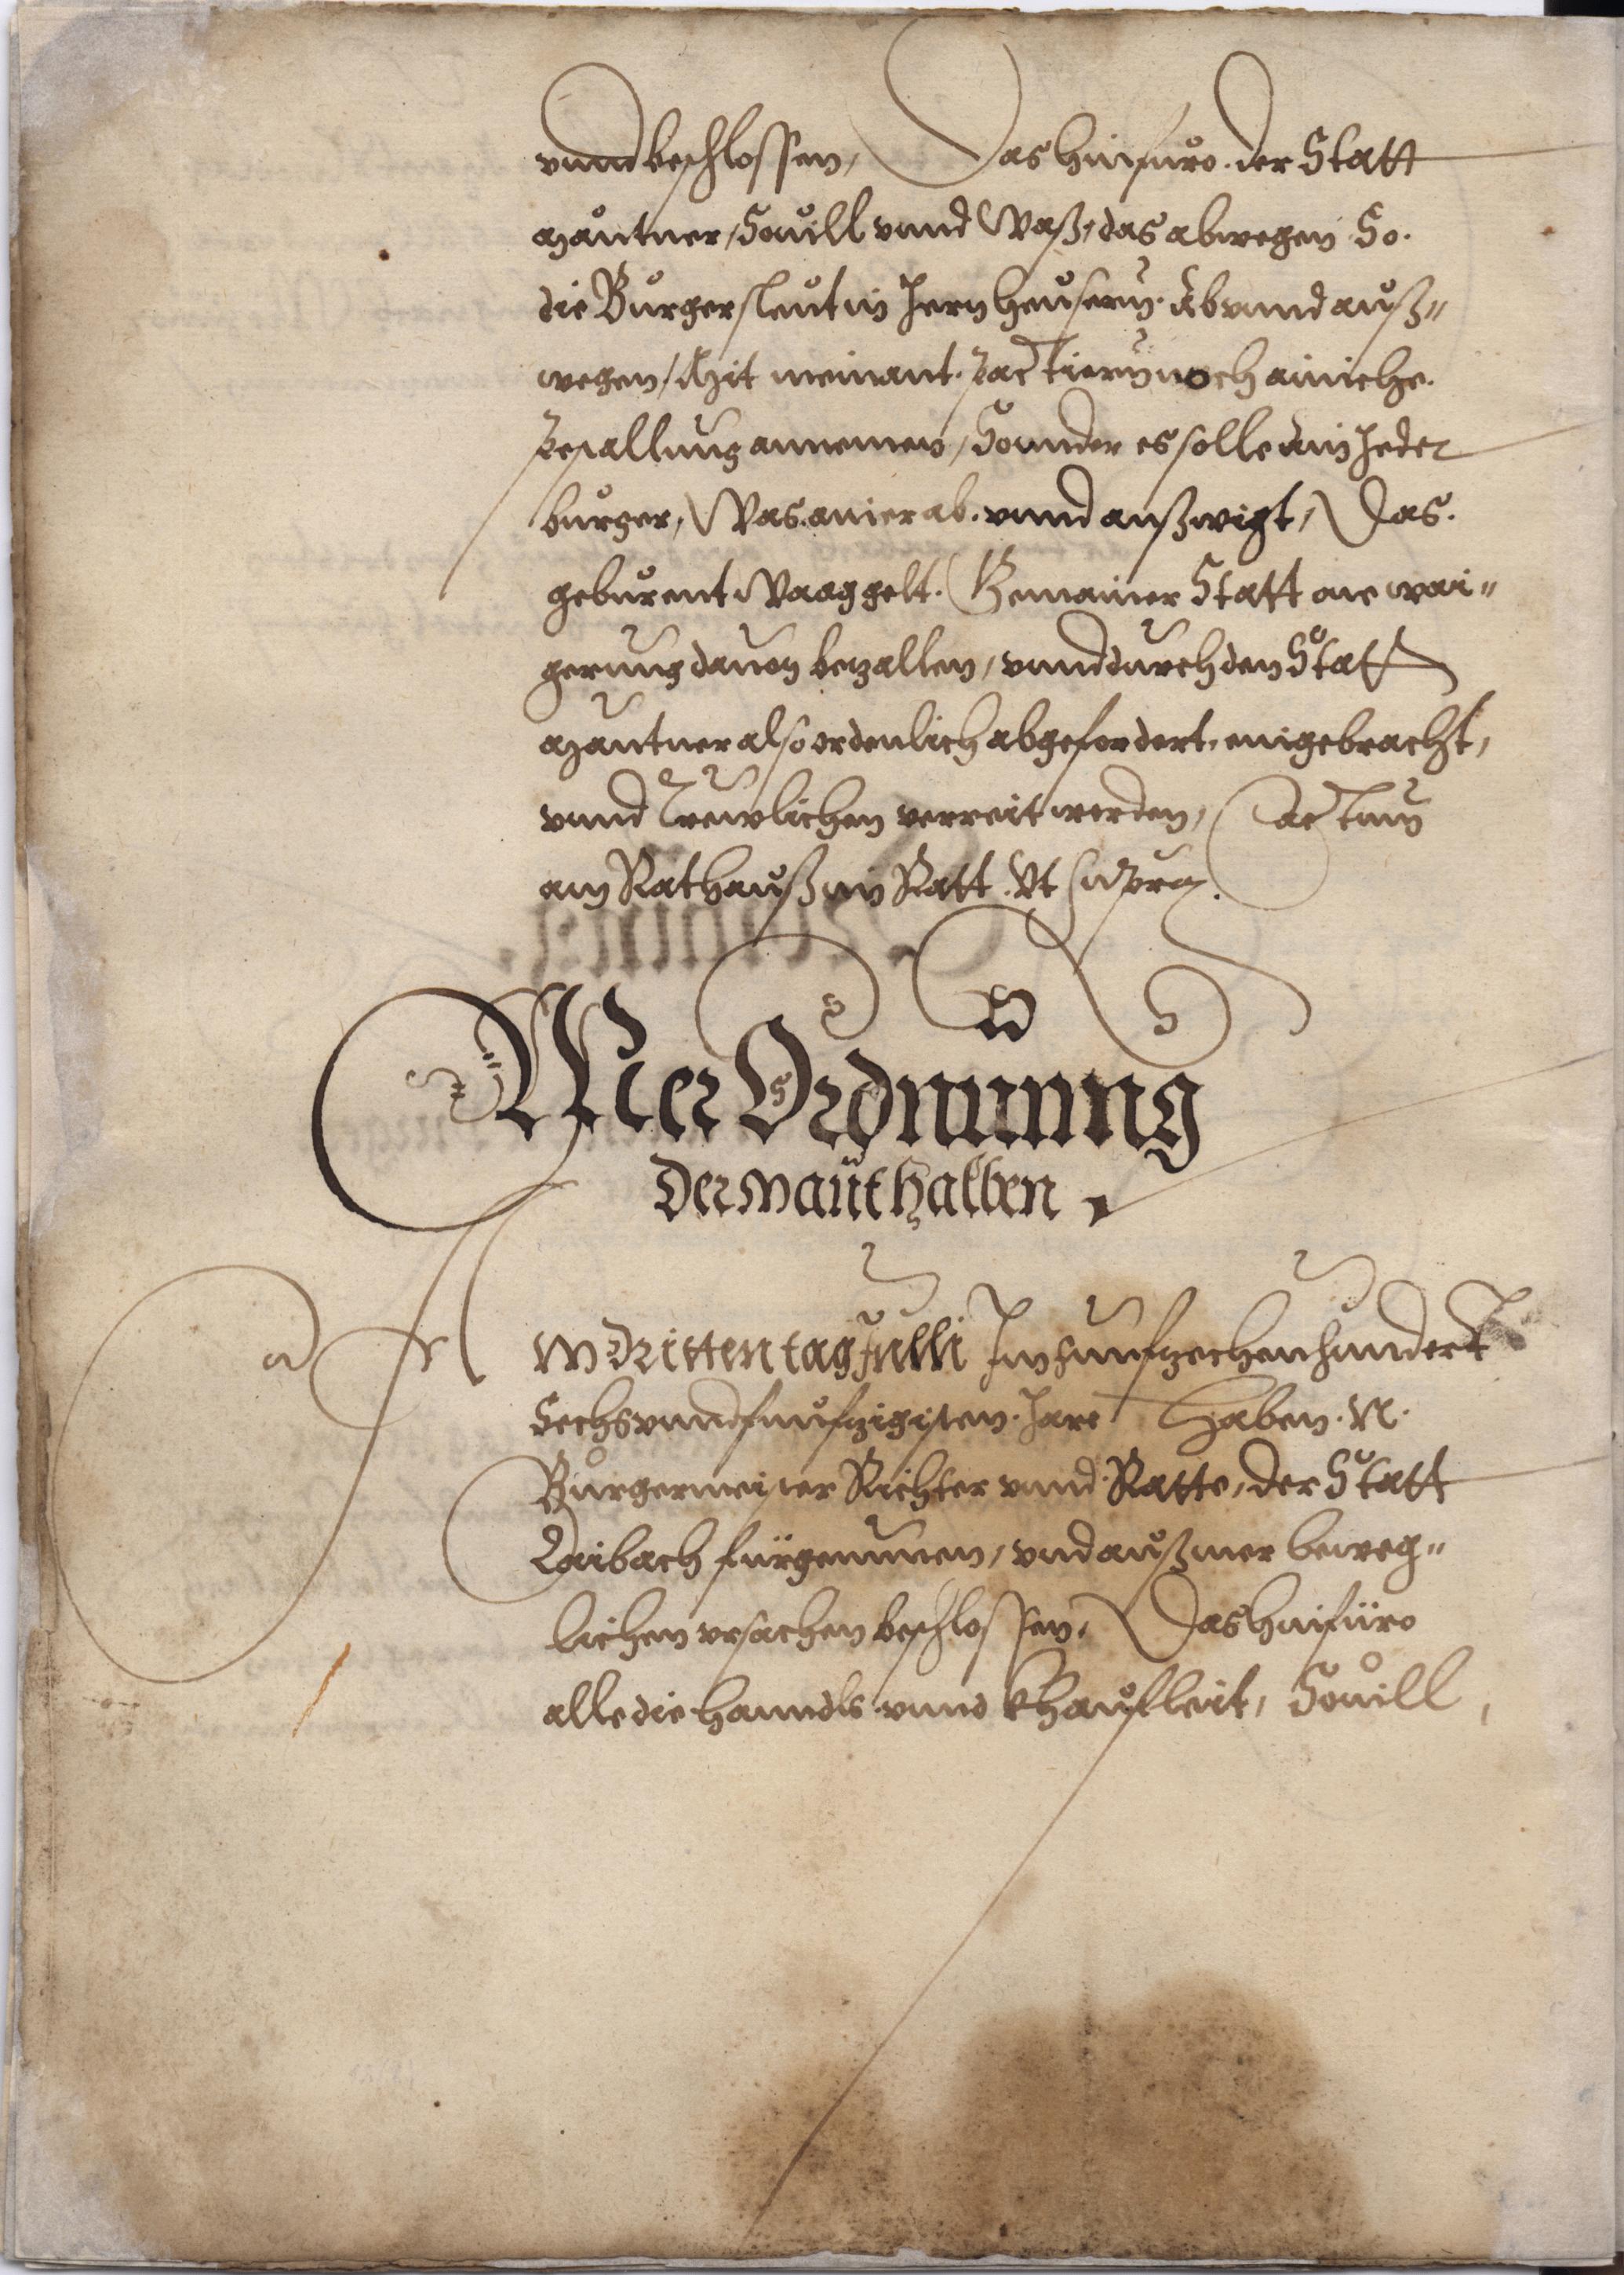 vnnd beschlossen, Das hinfuro der Statt
mautner, Souill vnnd Waß, das abwegen So.
die Burgersleut in Jern heusern. Ab vnnd auß„
wegen, Mit meinant. pactiern noch ainiche.
bezallung annemen, Sonnder es solle ain Jeder
burger, Was ainer ab. vnnd außwigt, Das.
geburent Waaggelt. Gemainer Statt one wai„
gerung dauon bezallen, vnnd durch den Statt
mautner also ordenlich abgefordert, eingebracht,
vnnd Trewlichen verreit werden, Actum
am Rathauß in Ratt. Vt supra.
Mer Ordnung
Der maut halben
Am Dritten tag Julli Im funfzechenhundert
Sechsvnndfunfzigisten. Jare Haben. N.
Burgermeister Richter vnnd Ratte, der Statt
Laibach fürgenumen, vnd auß mer beweg„
lichen vrsachen beschlossen, Das hinfüro
alle die hanndls vnnd khaufleit, Souill,